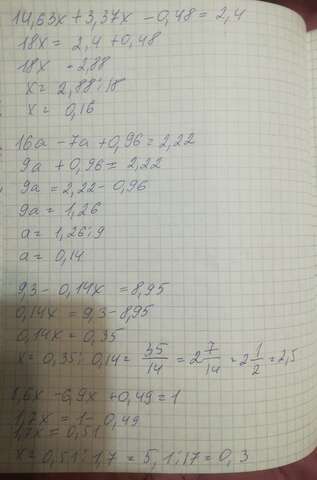 14,63x + 3,37x - 0,48 = 2,4
18x = 2,4 + 0,48
18x = 2,88
x = 2,88 : 18
x = 0,16
16a - 7a + 0,96 = 2,22
9a + 0,96 = 2,22
9a = 2,22 - 0,96
9a = 1,26
a = 1,26 : 9
a = 0,14
9,3 - 0,14x = 8,95
0,14x = 9,3 - 8,95
0,14x = 0,35
x = 0,35 : 0,14 = 35/14 = 2 7/14 = 2 1/2 = 2,5
8,6x - 6,9x + 0,49 = 1
1,7x = 1 - 0,49
1,7x = 0,51
x = 0,51 : 1,7 = 5,1 : 17 = 0,3